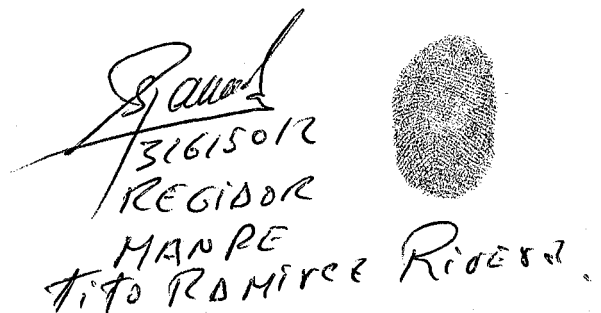 31615012
REGIDOR
MANRE
TiTo RAMIREZ RiVERA.